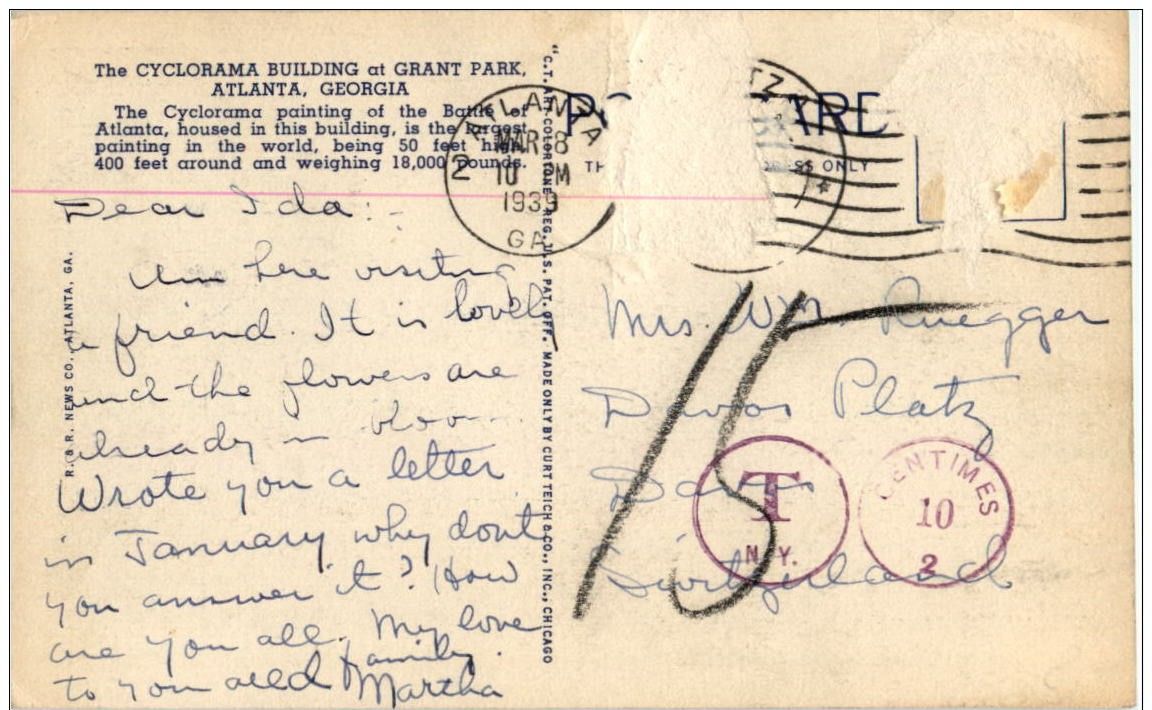 The CYCLORAMA BUILDING at GRANT PARK,
ATLANTA, GEORGIA
The Cyclorama painting of the Battle of
Atlanta, housed in this building, is the largest
painting in the world, being 50 feet high,
400 feet around and weighing 18,000 pounds.
Dear Ida:-
Am here visiting
a friend. It is lovely
and the flowers are
already in bloom.
Wrote you a letter
in January why dont
you answer it? How
are you all. My love
to you all & family.
Martha
R. & R. NEWS CO., ATLANTA, GA.
"C.T. ART-COLORTONE" REG. U.S. PAT. OFF. MADE ONLY BY CURT TEICH & CO., INC., CHICAGO
ATLANTA
2
MAR 8
10 M
1939
GA
TH
SS ONLY
Mrs. Wm. Ruegger
Davos Platz
Davos
Switzerland
15
T
N.Y.
CENTIMES
10
2